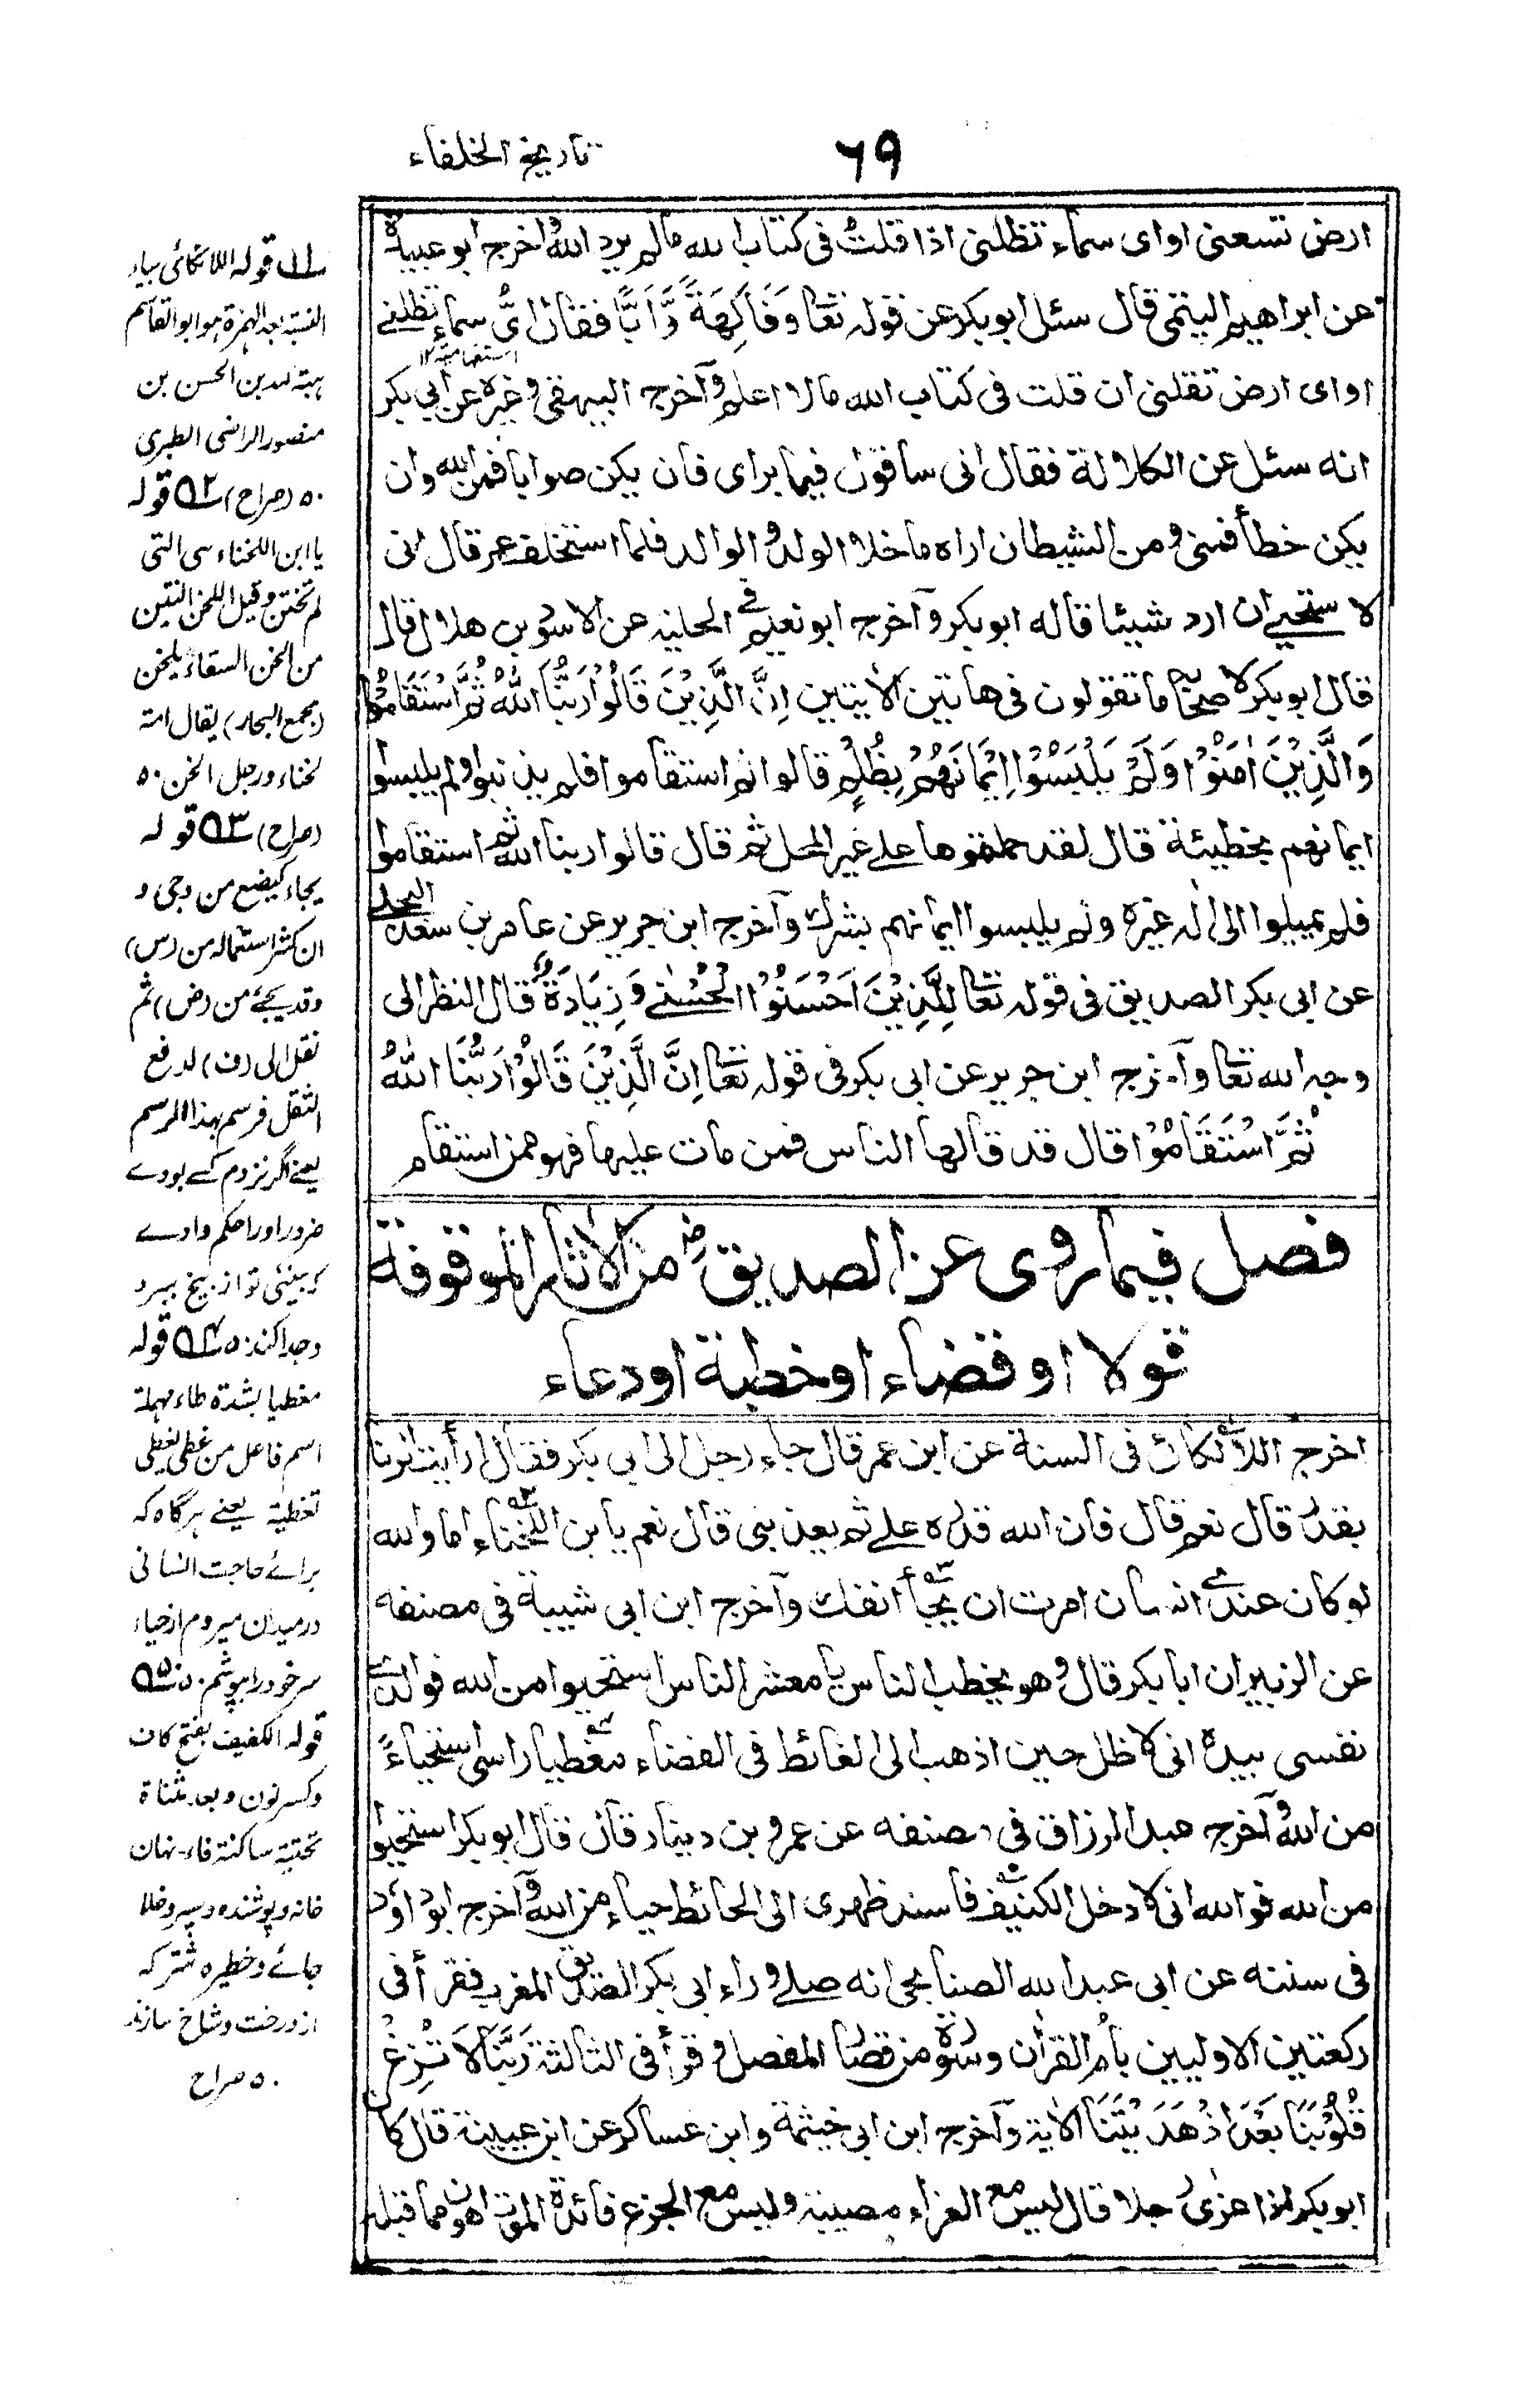 ٦٩
تاريخ الخلفاء
ارض تسعنى او اى سماء تظلنى اذا قلت فى كتاب الله مالم يرد الله و اخرج ابو عبيدة
عن ابراهيم التيمى قال سئل ابو بكر عن قوله تعا وَفَاكِهَةً وَّاَبًّا فقال اىُّ سماء تظلنے
استفهامية ١٢
او اى ارض تقلنى ان قلت فى كتاب الله مالا اعلم و آخرج البيهقى و غيره عن ابي بكر
انه سئل عن الكلالة فقال انى ساقول فيها براى فان يكن صوابا فمن الله وان
يكن خطأ فمنى و من الشيطان اراه ما خلا الولد و الوالد فلما استخلف عمر قال انى
لا ستحيے ان ارد شيئا قاله ابو بكر و آخرج ابو نعيم فے الحلية عن الاسود بن هلال قال
قال ابو بكر لا صحابه ما تقولون فى هاتين الاٰيتين اِنَّ الَّذِيْنَ قَالُوْا رَبُّنَا اللّٰهُ ثُمَّ اسْتَقَامُوْا
وَالَّذِيْنَ اٰمَنُوْا وَلَمْ يَلْبِسُوْا اِيْمَانَهُمْ بِظُلْمٍ قالوا ثم استقاموا فلم يذنبوا ولم يلبسوا
ايمانهم بخطيئة قال لقد حملتموها على غير المحل ثم قال قالوا ربنا الله ثم استقاموا
فلم يميلوا الى الٰه غيره ولم يلبسوا ايمانهم بشرك و آخرج ابن جرير عن عامر بن سعد البجلے
عن ابى بكر الصديق فى قوله تعا لِلَّذِيْنَ اَحْسَنُوْا الْحُسْنٰے وَ زِيَادَةٌ قال النظر الى
وجه الله تعا و آخرج ابن جرير عن ابى بكر فى قوله تعا اِنَّ الَّذِيْنَ قَالُوْا رَبُّنَا اللّٰهُ
ثُمَّ اسْتَقَامُوْا قال قد قالها الناس فمن مات عليها فهو ممن استقام
فصل فيما روى عن الصديق رض من الاٰثار الموقوفة
قولا او قضاء او خطبة او دعاء
اخرج اللالكائى فى السنة عن ابن عمر قال جاء رجل الى ابى بكر فقال ارأيت الزنا
بقدر قال نعم قال فان الله قدره علے ثم يعذبنى قال نعم يا ابن اللخناء اما والله
لو كان عندے انسان امرت ان يجأ انفك و آخرج ابن ابى شيبة فى مصنفه
عن الزبير ان ابا بكر قال و هو يخطب الناس يا معشر الناس استحيوا من الله فو الذے
نفسى بيده انى لاظل حين اذهب الى الغائط فى الفضاء مغطيا راسى استحياءً
من الله و آخرج عبد الرزاق فى مصنفه عن عمرو بن دينار قال قال ابو بكر استحيوا
من الله فو الله انى لا دخل الكنيف فاسند ظهرى الى الحائط حياء من الله و آخرج ابو داود
فى سننه عن ابى عبد الله الصنابحى انه صلے وراء ابى بكر الصديق المغرب فقرأ فى
ركعتين الاوليين بأم القرأن وسورة من قصار المفصل و قرأ فى الثالثة رَبَّنَا لَا تُزِغْ
قُلُوْبَنَا بَعْدَ اِذْ هَدَيْتَنَا الاٰية و آخرج ابن ابى خيثمة وابن عساكر عن ابن عيينة قال كان
ابو بكر اذا عزى رجلا قال ليس مع العزاء مصيبة و ليس مع الجزع فائدة الموت اهون مما قبله
ـلـه ١ قوله اللالكائى بياء
النسبة بعد الهمزة هو ابو القاسم
هبة الله بن الحسن بن
منصور الرازى الطبرى
٥٠ (صراح) ٢ قوله
يا ابن اللخناء هى التى
لم تختن و قيل اللخن النتن
من لخن السقاء يلخن
(مجمع البحار) يقال امة
لخناء و رجل الخن ٥٠
(صراح) ٣ قوله
يجاء كيضع من وجى و
ان كثر استعماله من (س)
وقد يجئ من (ض) ثم
نقل الى (ف) لدفع
الثقل فرسم بهذا الرسم
يعنے اگر نزدم کسے بودے
ضرور اورا حکم دادے
کہ بینئی تو از بیخ ببرد
و جدا کند ٥ ٤ قوله
مغطيا بشدة طاء مهملة
اسم فاعل من غطى يغطى
تغطية يعنے ہر گاہ کہ
برائے حاجت انسانى
درمیدان میروم از حیاء
سر خود را بپوشم ٥٠ ٥
قوله الكنيف بفتح كاف
و كسر نون و بعد مثناة
تحتية ساكنة فاء نهان
خانه و پوشنده و سپر و خلا
جائے و حظیرہ شتر کہ
از درخت و شاخ سازند
٥٠ صراح